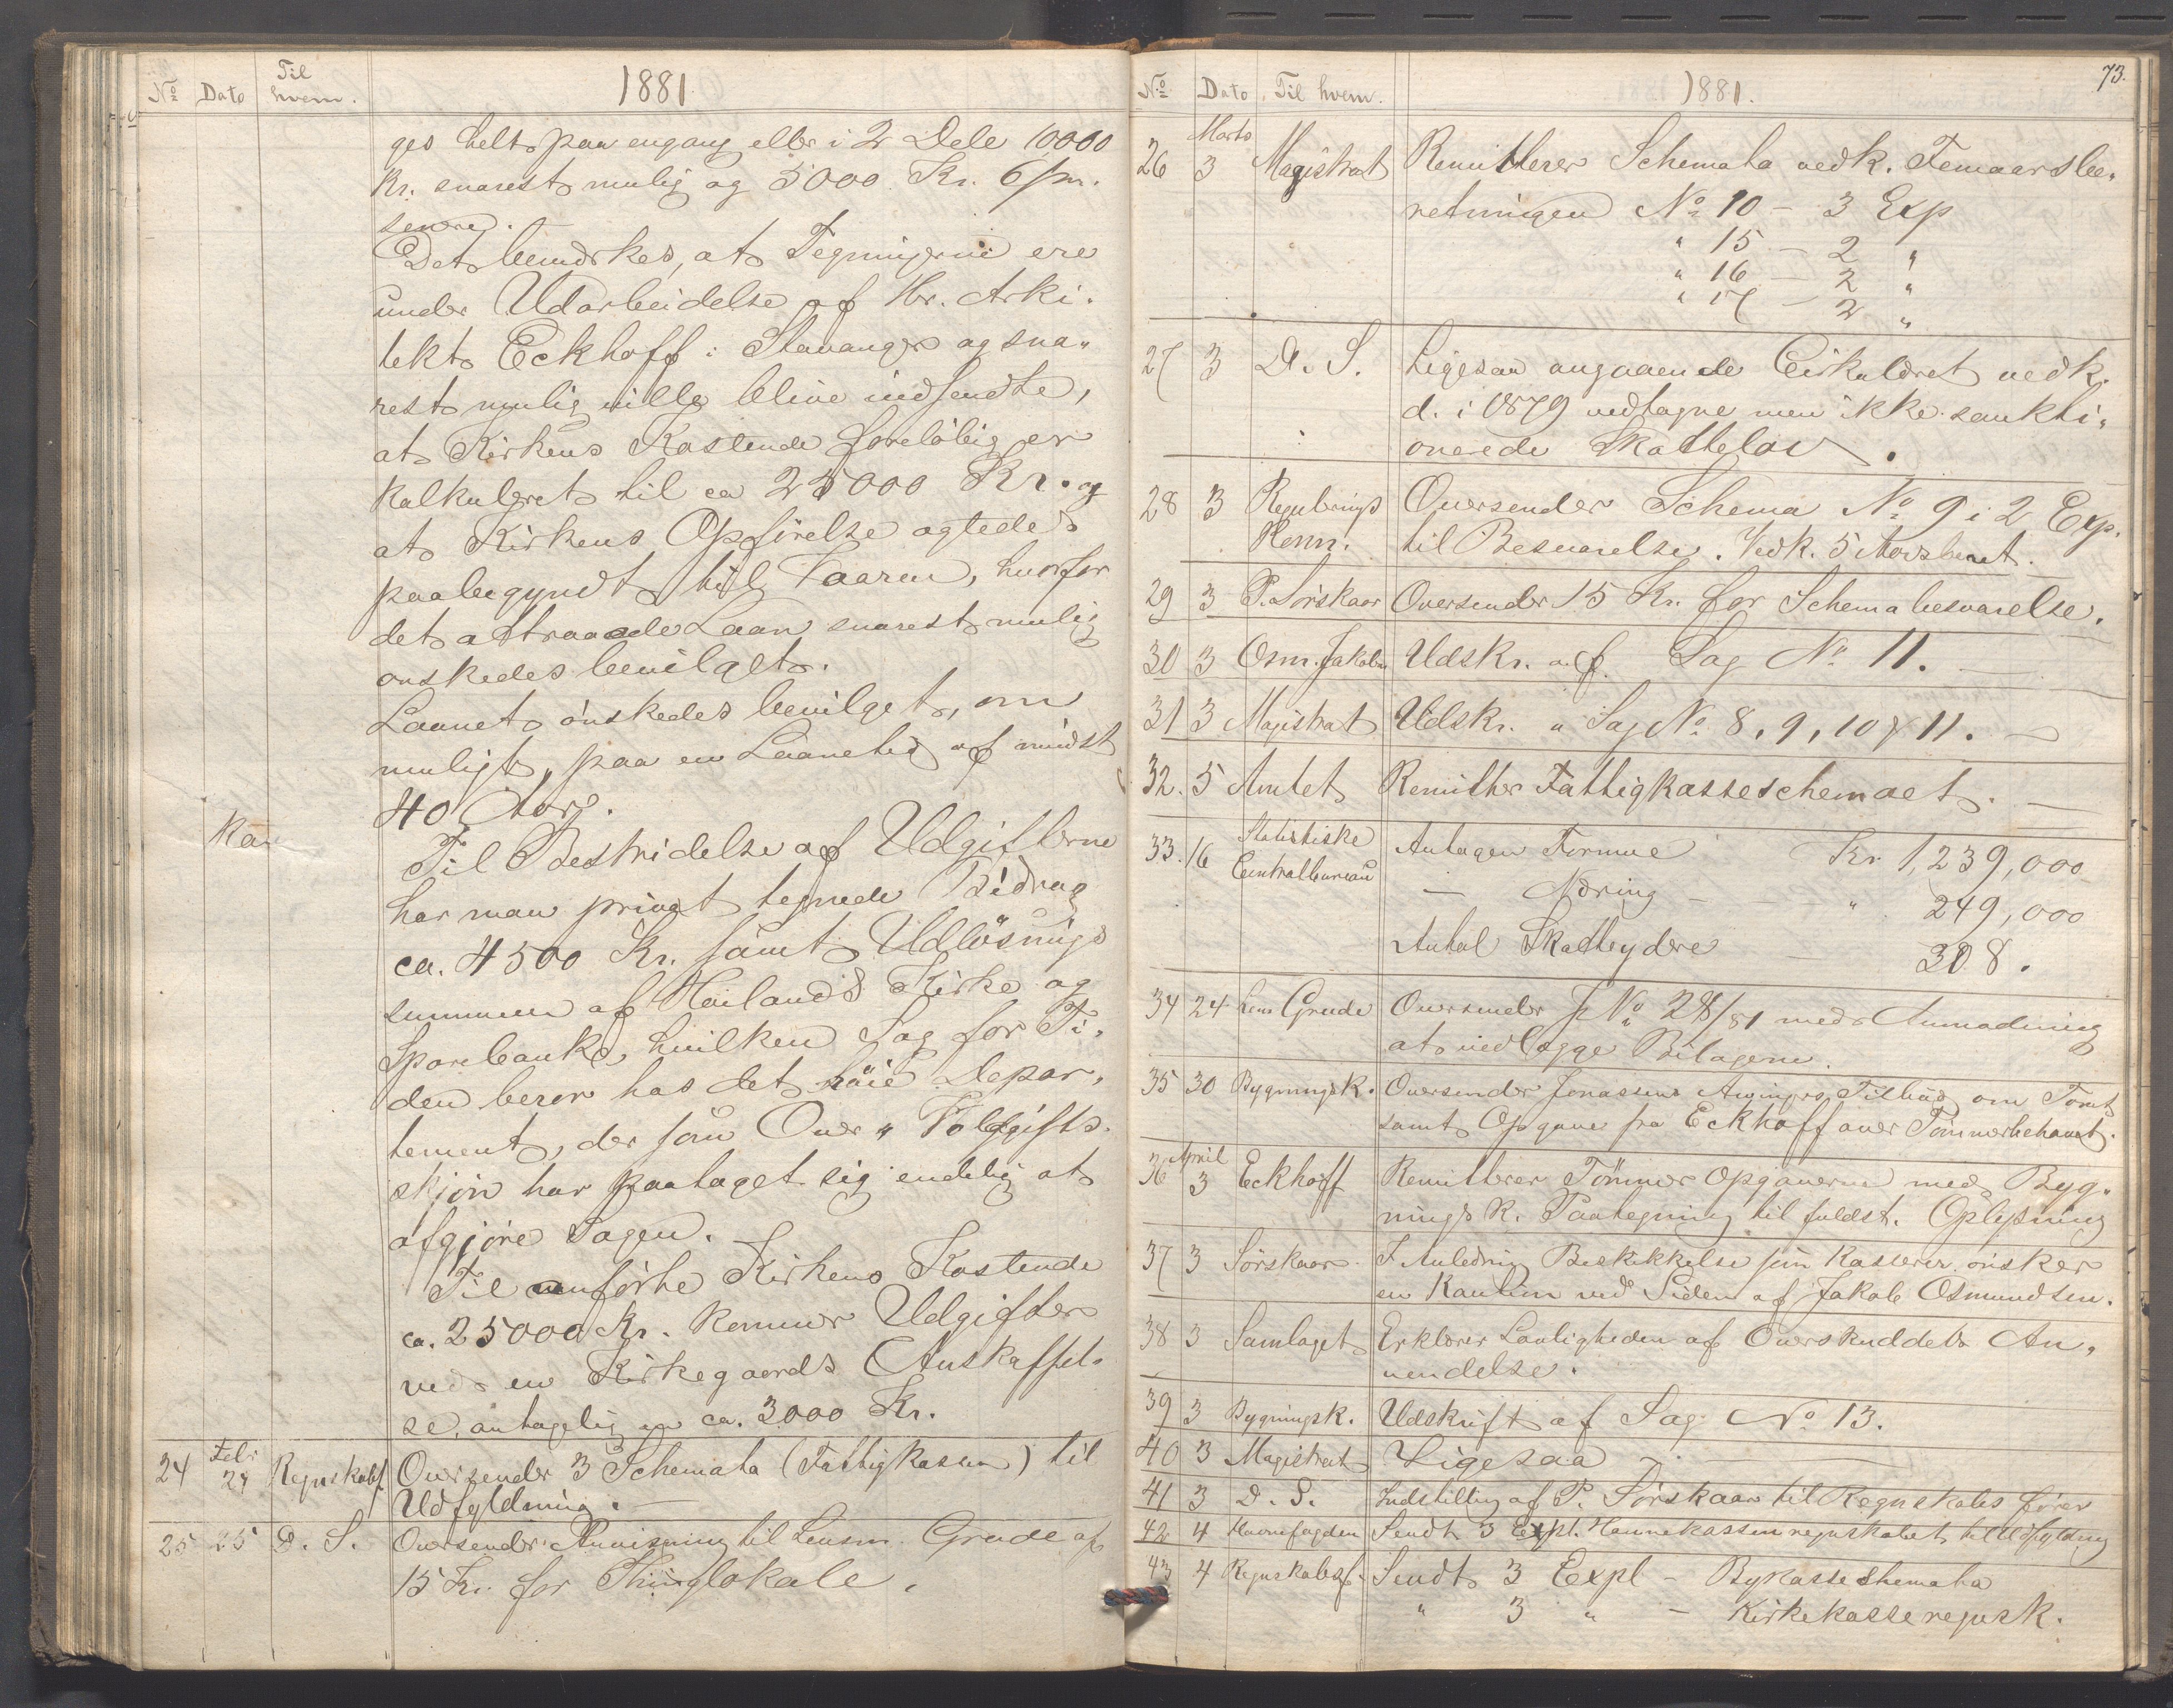 No Dato Til hvem. 1881
ges helt paa engang eller i 2 Dele 10000
Kr. snarest mulig og 5000 Kr. 6/m.
senere.
Det bemærkes, at Tegningerne ere
under Udarbeidelse af Hr. Arki-
tekt Eckhoff i Stavanger og sna-
rest mulig ville blive indsendte,
at Kirkens Kostende foreløbig er
kalkuleret til ca 25000 Kr. og
at Kirkens Opførelse agtedes
paabegyndt til Vaaren, hvorfor
det attraaede Laan snarest mulig
ønskedes bevilget.
Laanet ønskedes bevilget, om
muligt, paa en Laanetid af mindst
40 Aar.
Til Bestridelse af Udgifterne
har man privat tegnede Bidrag
ca. 4500 Kr. samt Udløsnings
summen af Høilands Kirke og
Sparebank, hvilken Sag for Ti-
den beror hos det høie Depar-
tement, der som Over " Voldgifts-
skjøn har paataget sig endelig at
afgjøre Sagen.
Til anførte Kirkens Kostende
ca. 25000 Kr. kommer Udgifter
ved en Kirkegaards Anskaffel-
se, antagelig ca. 3000 Kr.
24 Febr 24 Regnskabsf. Oversender 3 Schemata (Fattigkassen) til
Udfyldning.
25 25 D. S. Oversender Anvisning til Lensm. Grude af
15 Kr. for Thinglokale.
73.
No Dato Til hvem. 1881.
26 Marts 3 Magistrat Remitterer Schemata vedk. Femaarsbe-
retningen No 10 - 3 Exp
" 15 - 2 "
" 16 - 2 "
" 17 - 2 "
27 3 D. S. Ligesaa angaaende Cirkulæret vedk.
d. i 1879 vedtagne men ikke sankti-
onerede Skattelov.
28 3 Regulerings Oversender Schema No 9 i 2 Exp.
Komm. til Besvarelse. Vedk. 5 Aarsberet.
29 3 P. Sørskaar Oversender 15 Kr. for Schemabesvarelse.
30 3 Osm. Jakobs Udskr. af Sag No 11.
31 3 Magistrat Udskr. " Sag No 8, 9, 10 & 11.
32. 5 Amtet Remitter Fattigkasseschemaet.
33. 16 Statistiske Antagen Formue Kr 1,239,000
Centralbureau — Næring — " 249,000
Antal Skatteydere — 308.
34 24 Lens Grude Oversender J No 28/81 med Anmodning
at vedlægge Bilagene.
35 30 Bygningsk. Oversender Jonassens Tilbud om Tomt
samt Opgave fra Eckhoff over Tømmerbehovet.
36 April 3 Eckhoff Remitterer Tømmer Opgaverne med Byg-
nings K. Paategning til fuldst. Oplysning
37 3 Sørskaar I Anledning Beskikkelse som Kasserer ønskes
en Kaution ved Siden af Jakob Osmundsen.
38 3 Samlaget Erklærer Lovligheden af Overskuddets An-
vendelse.
39 3 Bygningsk. Udskrift af Sag No 13.
40 3 Magistrat Ligesaa
41 3 D. S. Indstilling af P. Sørskaar til Regnskabsfører
42 4 Havnefogden Sendt 3 Expl. Havnekassenregnskabet til Udfyldning
43 4 Regnskabsf. Sendt 3 Expl - Bykasseshemata
" 3 " - Kirkekasseregnsk.